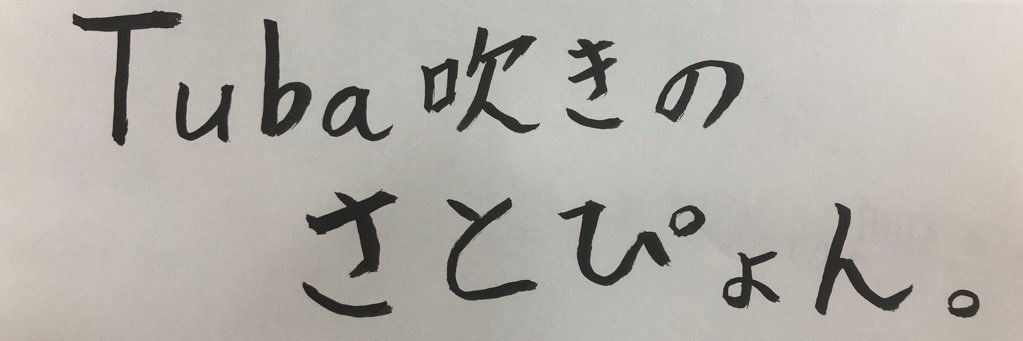 Tuba吹きの
さとぴょん。